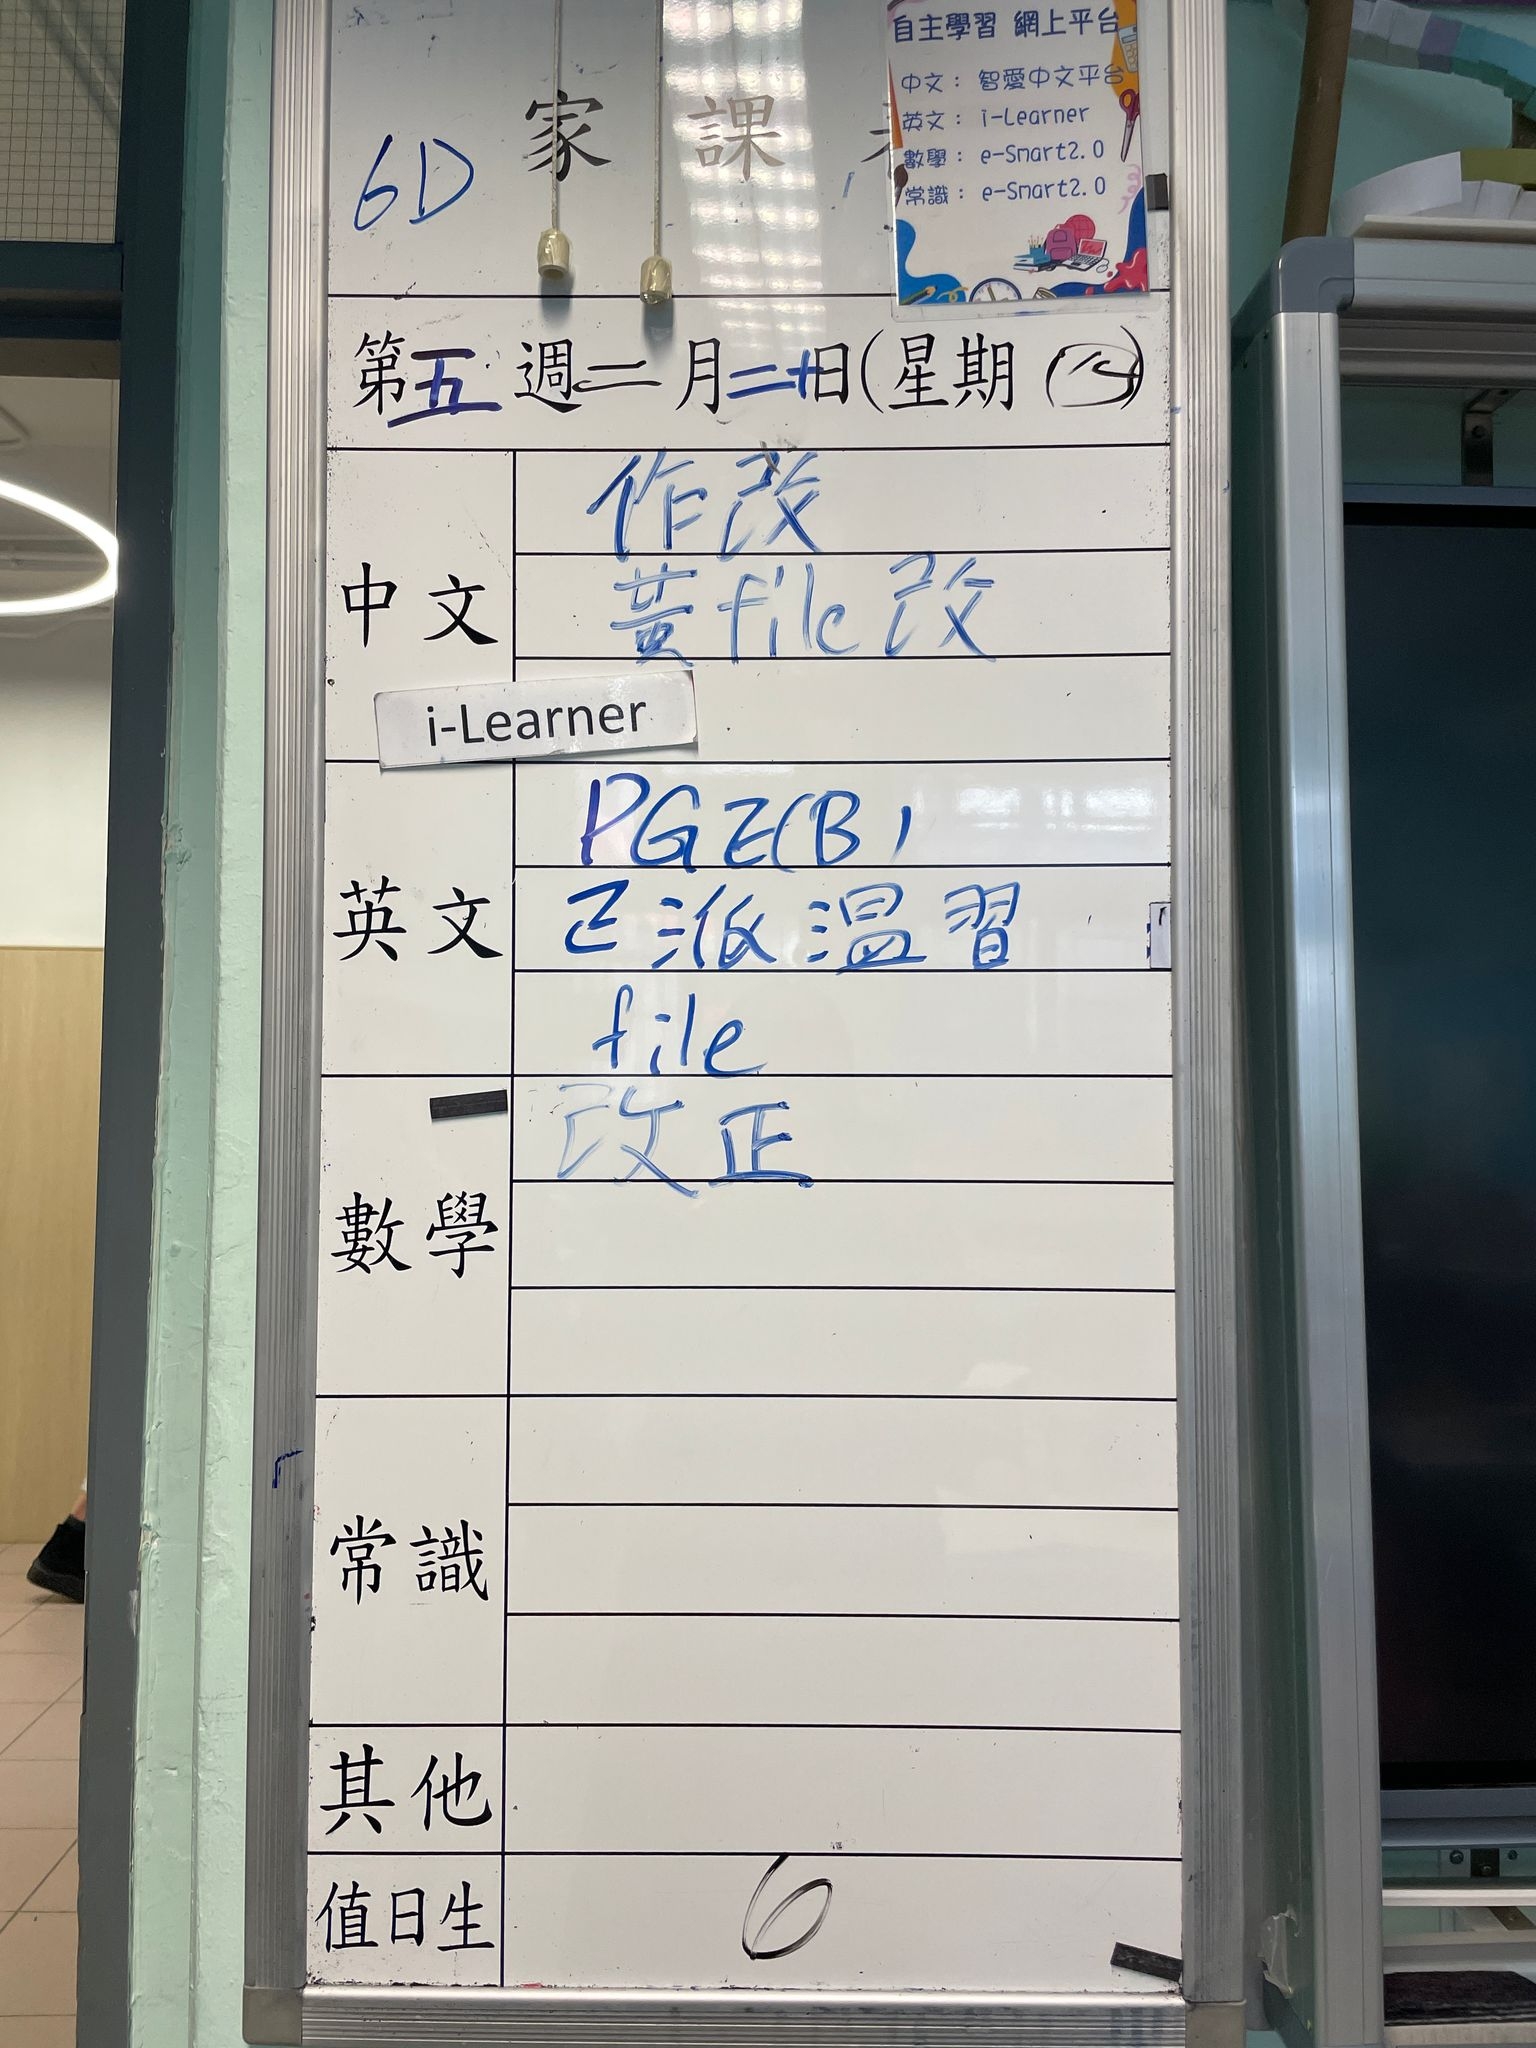 自主學習 網上平台
中文： 智愛中文平台
英文： i-Learner
數學： e-Smart2.0
常識： e-Smart2.0
家 課
6D
第五週二月二十日(星期四)
中文
作改
黃file改
i-Learner
英文
PGE(B)
已派溫習
file
數學
改正
常識
其他
值日生
6